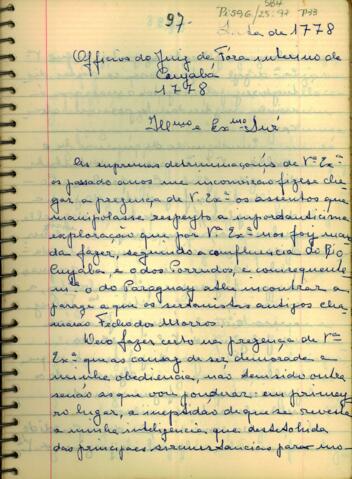 584
97- Pi:596/25:97 P33
Lata de 1778
Officios do Juiz de Fóra interino de
Cuyabá
1778
Illmo e Exmo Snr
As supremas determinaçoiñs de Vª Exª
os passado anos me inconvizão fizese che-
gar a prezença de Vª Exª os asentos que
manipolasse respeyto a importantissima
exploração que por Vª Exª nos foy man-
da fazer, seguindo a confluencia do Rio
Cuyaba, e o dos Porrudos, e conseguente
m.te o do Paraguay athé incontrar a
parage a que os sertanistas antigos cha-
marão Fecho dos Morros.
Devo fazer certo na prezença de Vª
Exª que as cauzas de ser dimorada a
minha obediencia, não tem sido outra
senão as que vou pondurar: em primey-
ro lugar, a ineptidão de que se reveste
a minha inteligencia que destetuhida
das principaes sircunstancias para mo-